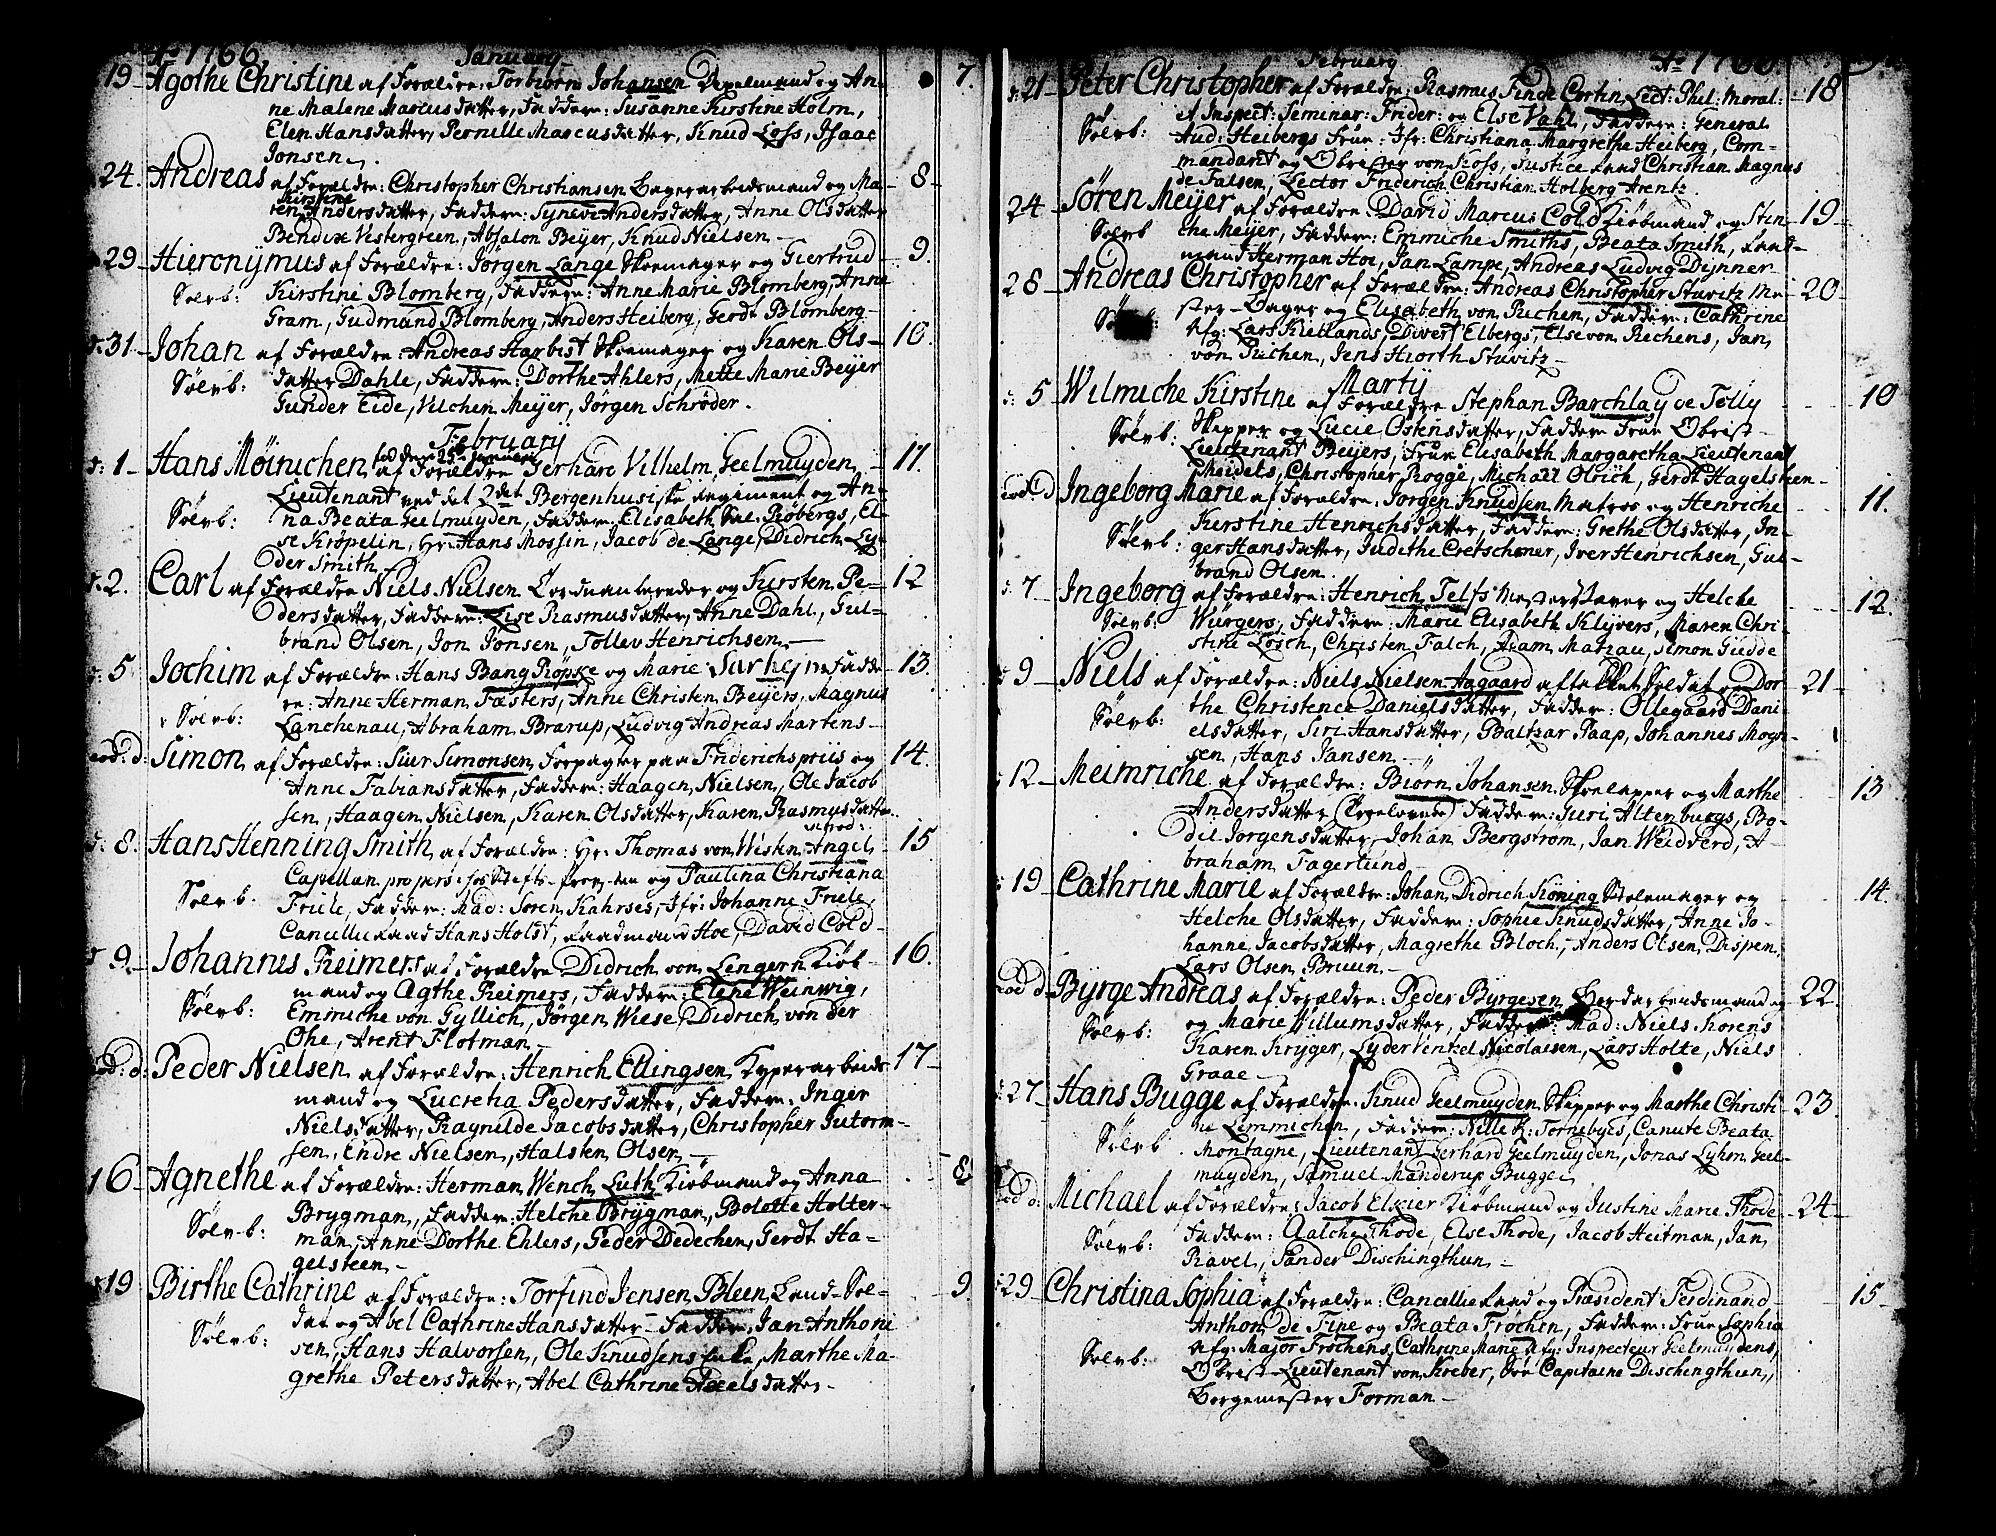 Ao 1766 January
19 Agothe Christine af Forældre: Torbiørn Johansen Degelmand og An- 7.
ne Malene Marcusdatter, Faddere: Susanne Kirstine Holm,
Elen Hansdatter, Pernille Marcusdatter, Knud Loss, Isaac
Jonsen.
24. Andreas af Forældre: Christopher Christiansen Bagerarbeidsmand og Ma- 8
Kirstine
ren Andersdatter, Faddere: Synevi Andersdatter, Anne Olsdatter
Bendix Vestergreen, Absalon Beyer, Knud Nielsen
29 Hieronymus af Forældre: Jørgen Lange Skoemager og Giertrud 9.
Sølvb: Kirstine Blomberg, Faddere: Anne Marie Blomberg, Anne
Gram, Gudmund Blomberg, Anders Heiberg, Gerdt Blomberg
31 Johan af Forældre: Andreas Harbist Skoemager og Karen Ols- 10.
Sølvb: datter Dahle, Faddere: Dorthe Ahlers, Mette Marie Beyer
Gunder Eide, Vilchen Meyer, Jørgen Schrøder.
February
fød den 25de Januarii
1 Hans Møinichen af Forældre Gerhard Vilhelm Geelmuyden 11.
Lieutenant ved det 2det Bergenhusiske Regiment og An-
Sølvb: na Beata Geelmuyden, Faddere: Elisabeth Sal. Røbergs, El-
se Krøpelin, Hr: Hans Mossin, Jacob de Lange, Didrich Ly-
der Smith
2. Carl af Forældre Niels Nielsen og Kirsten Pe- 12
dersdatter, Faddere: Lise Rasmusdatter, Anne Dahl, Gul-
brand Olsen, Jon Jonsen, Tollev Henrichsen
5 Jochim af Forældre: Hans Bang Røpke og Marie Fadde 13.
re: Anne Herman Fasters, Anne Christen Beyers, Magnus
Sølvb: Lanchenau, Abraham Brarup, Ludvig Andreas Martens
eod: d: Simon af Forældre: Siur Simonsen Forpagter paa Friderichspriis og 14.
Anne Fabiansdatter, Faddere: Haagen Nielsen, Ole Jacob
sen, Haagen Nielsen, Karen Olsdatter, Karen Rasmusdatter
8. Hans Henning Smith af Forældre: Hr. Thomas von Westen Angel 15
Capellan pro pers: og Paulina Christiana
Sølvb. Friele, Faddere: Mad: Søren Kahrses, Jfr: Johanne Friele,
Cancellieraad Hans Holst, Raadmand Hoe, David Cold
9 Johannis Reimers af Forældre Didrich von Lengern Kiøb- 16.
mand og Agthe Reimers, Faddere: Elene Weinwig,
Sølvb: Emmiche von Gyllich, Jørgen Wiese, Didrich von der
Ohe, Arent Flotman
eod: d: Peder Nielsen af Forældre: Henrich Ellingsen Kyperarbeids 17
mand og Lucretia Pedersdatter, Faddere: Inger
Nielsdatter, Ragnilde Jacobsdatter, Christopher Gutorm-
sen, Endre Nielsen, Halsten Olsen
16 Agnethe af Forældre: Herman Wench Luth Kiøbmand og Anna 8
Brygman, Faddere: Helche Brygman, Bolette Holter-
Sølvb: man, Anne Dorthe Ehlers, Peder Dedechen, Gerdt Ha-
gelsteen
19 Birthe Cathrine af Forældre: Torfind Jensen Bleen Land-Sol- 9
dat og Abel Cathrine Hansdatter Faddere: Jan Anthoni
Sølvb: sen, Hans Halvorsen, Ole Knudsens Enke, Marthe Ma-
grethe Petersdatter, Abel Cathrine Nielsdatter
February Ao 1766
21 Peter Christopher af Forældre: Rasmus Finde Cortin Lect: Phil: Moral: 18
et Inspect: Seminar: Frider: og Else Vahl, Faddere: General
Sølvb: Aud: Heibergs Frue: Jfr: Christiana Margretha Heiberg, Com-
mandant og Obrister von Hoss, Justice Raad Christian Magnus
de Falsen, Lector Friderich Christian Holberg Arentz.
24 Søren Meyer af Forældre: David Marcus Cold Kiøbmand og Stin 19
Sølvb che Meyer, Faddere: Emmiche Smiths, Beata Smith, Raad-
mand Herman Hoe, Jan Lampe, Andreas Ludvig Dynner
28 Andreas Christopher af Forældre: Andreas Christopher Stuvitz Me 20
ster-Bager og Elisabeth von Puchen, Faddere: Cathrine
Sølvb: Afg: Lars Kiellands, Divert Elbergs, Else von Rechens, Jan
von Puchen, Jens Hiorth Stuvitz
Martij
5 Wilmiche Kirstine af Forældre Stephan Barchlay de Tolly 10
Sølvb: Skipper og Lucie Ostensdatter, Faddere Frue Obrist-
Lieutenant Beyers, Frue Elisabeth Margaretha Lieutenant
Meidels, Christopher Rogge, Michael Olrich, Gerdt Hagelsteen
eod d Ingeborg Marie af Forældre: Jørgen Knudsen Matros og Henriche 11.
Kirstine Henrichsdatter, Faddere: Grethe Olsdatter, In-
Sølvb: ger Hansdatter, Judithe Cretschmer, Iver Henrichsen, Gul-
brand Olsen.
7 Ingeborg af Forældre: Henrich Telfs og Helche 12.
Sølvb: Würgers, Faddere: Marie Elisabeth Klyvers, Maren Chri-
stine Losch, Christen Falch, Adam Matzau, Simon Giedde
9 Niels af Forældre: Niels Nielsen Aagaard aftakket Soldat og Dor 21
Sølvb: the Christence Danielsdatter, Faddere: Ollegaard Dani-
elsdatter, Siri Hansdatter, Baltzar Paap, Johannes Mogn-
sen, Hans Jansen
12 Meimriche af Forældre: Biørn Johansen Skoelapper og Marthe 13
Andersdatter (Troelovede) Faddere: Guri Altenburgs, Bo-
del Jørgensdatter, Johan Bergstrøm, Jan Weidferd, A-
braham Fagerlund
19 Cathrine Marie af Forældre: Johan Didrich Køning Stolemager og 14.
Helche Olsdatter, Faddere: Sophie Knudsdatter, Anne Jo-
hanne Jacobsdatter, Magrethe Bloch, Anders Olsen Dispen,
Lars Olsen Bruun
eod d Byrge Andreas af Forældre: Peder Byrgesen Gordarbeidsmand og 22.
Sølvb: og Marie Willumsdatter, Faddere: Mad: Niels Korens
Karen Kryger, Lyder Venkel Nicolaisen, Lars Holte, Niels
Graae
27 Hans Bugge af Forældre: Knud Geelmuyden Skipper og Marthe Christi 23.
Sølvb ne Lemmichen, Faddere: Nille K: Tornebyes, Canute Beata
Montagne, Lieutenant Gerhard Geelmuyden, Jonas Lyhm Geel-
muyden, Samuel Manderup Bugge
eod d: Michael af Forældre: Jacob Elzier Kiøbmand og Justine Marie Thode 24
Sølvb: Faddere: Aalche Thode, Else Thode, Jacob Heitman, Jan
Ravel, Sander Dischingthun
29 Christina Sophia af Forældre: Cancellie Raad og Præsident Ferdinand 15
Anthon de Fine og Beata Frochen, Faddere: Frue Sophia
Sølvb: Afg: Major Frochens, Cathrine Marie Afg: Inspecteur Geelmuydens,
Obrist-Lieutenant von Kreber, Søe Capitaine Dischingthun,
Borgemester Forman